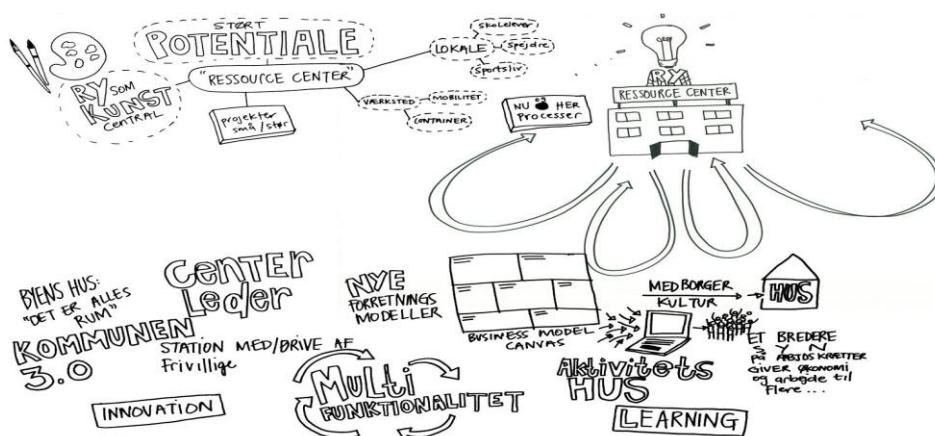 STØRT
POTENTIALE
"RESSOURCE CENTER"
RY SOM
KUNST
CENTRAL
projekter
små/stør
LOKALE
Skolelever
Spejdre
Sportsliv
VÆRKSTED
MOBILITET
CONTAINER
NU & HER
Processer
RY
RESSOURCE CENTER
BYENS HUS:
"DET ER ALLES
RUM"
KOMMUNEN
3.0
INNOVATION
CENTER
Leder
STATION MED/DRIVE AF
Frivillige
MULTI
FUNKTIONALITET
NYE
FORRETNINGS
MODELLER
BUSINESS MODEL
CANVAS
MEDBORGER
KULTUR
HUS
AKtivitets
HUS
LEARNING
ET BREDERE
SYN
PÅ
GIVER ØKONOMI
og arbejde til
Flere...